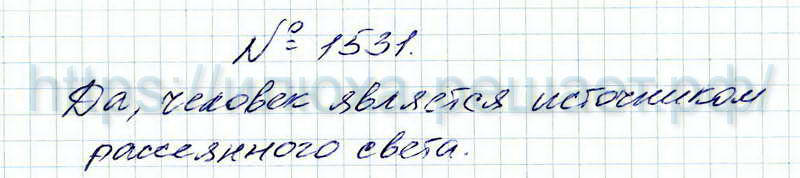 № 1531.
https://илюха-решает.рф/
Да, человек является источником
рассеянного света.